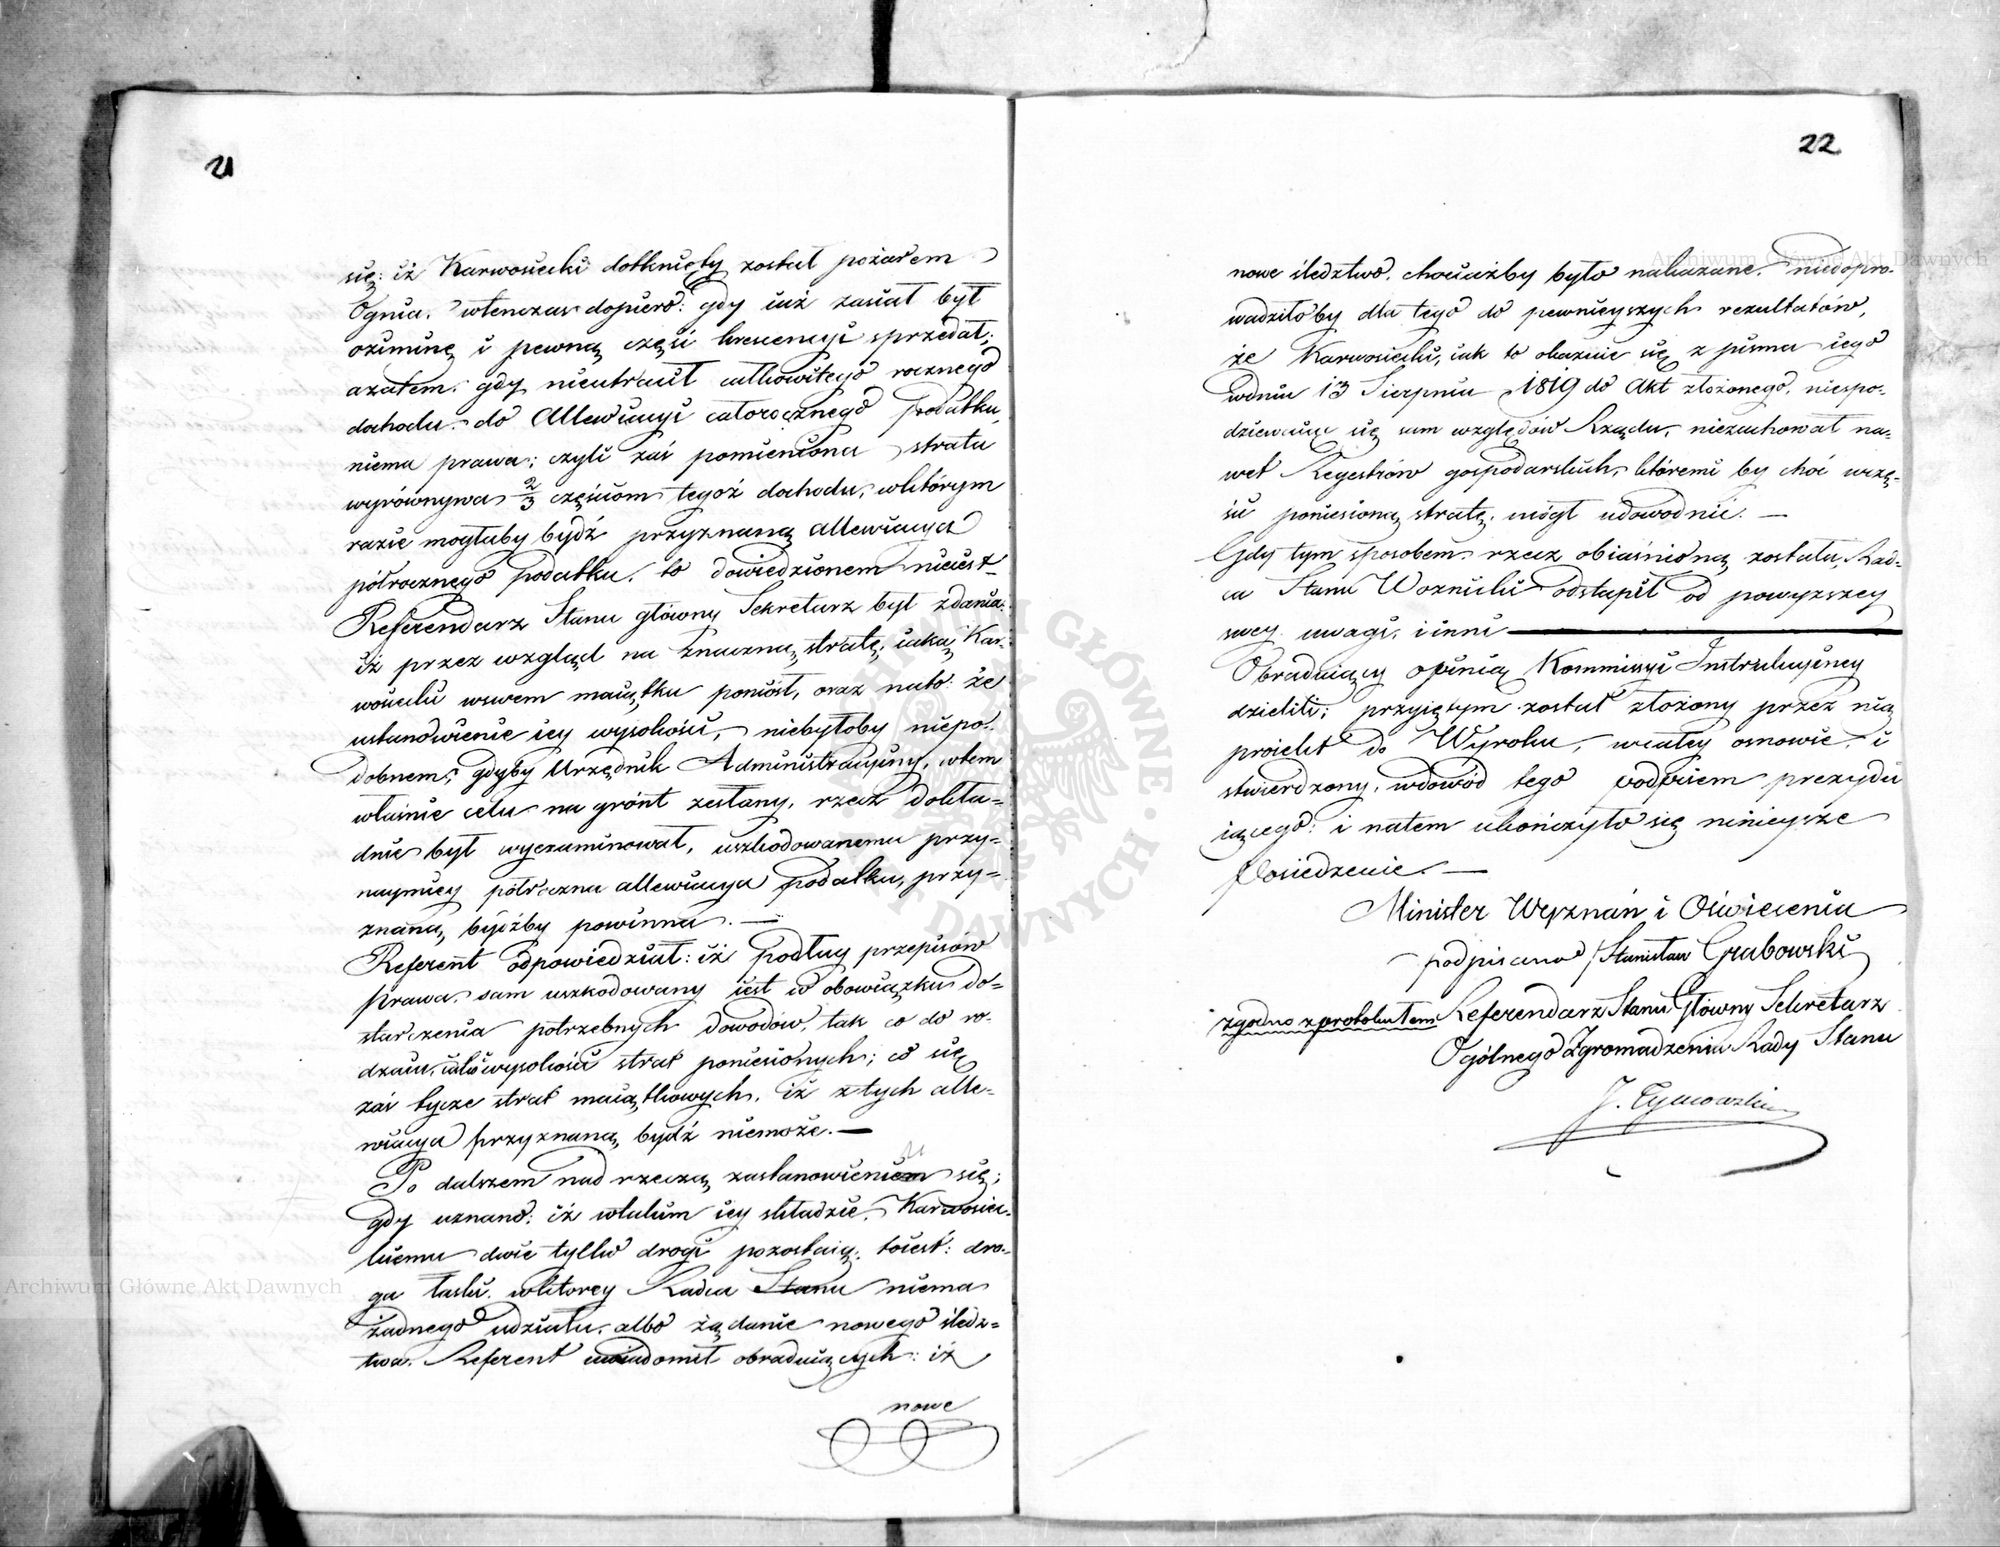 21
się: iż Karwosiecki dotknięty został pożarem
Ognia, wtenczas dopiero: gdy iuż zasiał był
oziminę i pewną część krescencyi sprzedał;
azatem, gdy nieutracił całkowitego rocznego
dochodu, do Allewiacyi całorocznego podatku,
niema prawa; czyli zaś pomieniona strata
wyrównywa 2/3 częściom tegoż dochodu, wktórym
razie mogłaby bydź przyznaną allewiacya
półrocznego podatku, to dowiedzionem nieiest
Referendarz Stanu główny Sekretarz był zdania:
iż przez wzgląd na znaczną stratę, iaką Kar-
wosiecki wswem maiątku poniósł, oraz nato: że
ustanowienie iey wysokości, niebyłoby niepo-
dobnem; gdyby Urzędnik Administracyiny, wtem
właśnie celu na grónt zesłany, rzecz dokła-
dnie był wyexaminował, uszkodowanemu przy-
naymniey półroczna allewiacya podatku, przy-
znaną bydźby powinna. —
Referent odpowiedział: iż podług przepisów
prawa, sam uszkodowany iest w obowiązku do-
starczenia potrzebnych dowodów, tak co do ro-
dzaiu, iako wysokości strat poniesionych; co się
zaś tycze strat maiątkowych, iż z tych alle-
wiacya przyznaną bydź niemoże. —
Po dalszem nad rzeczą zastanowieniem się;
gdy uznano: iż wtakim iey składzie, Karwosiec-
kiemu dwie tylko drogi pozostaią, toiest: dro-
ga łaski, wktórey Rada Stanu niema
żadnego udziału, albo żądanie nowego śledz-
twa, Referent uwiadomił obraduiących: iż
nowe
22
nowe śledztwo, chociażby było nakazane, niedopro-
wadziłoby dla tego do pewnieyszych rezultatów,
że Karwosiecki, iak to okazuie się z pisma iego
wdniu 13 Sierpnia 1819 do Akt złożonego, niespo-
dziewaiąc się sam względów Rządu, niezachował na-
wet Regestrów gospodarskich, któremi by choć wczę-
ści poniesioną stratę, mógł udowodnić. —
Gdy tym sposobem rzecz obiaśnioną została, Rad-
ca Stanu Woznicki odstąpił od powyższey
swey uwagi, i inni
Obraduiący opinią Kommissyi Instrukcyiney
dzielili; przyiętym został złożony przez nią
proiekt do Wyroku, wcałey osnowie, i
stwierdzony, wdowód tego podpisem prezydu
iącego: i natem ukończyło się ninieysze
Posiedzenie. —
Minister Wyznań i Oświecenia
podpisano / Stanisław Grabowski
zgodno z protokułem Referendarz Stanu Główny Sekretarz
Ogólnego Zgromadzenia Rady Stanu
J. Tymowski
Archiwum Główne Akt Dawnych
Archiwum Główne Akt Dawnych
ARCHIWUM GŁÓWNE AKT DAWNYCH